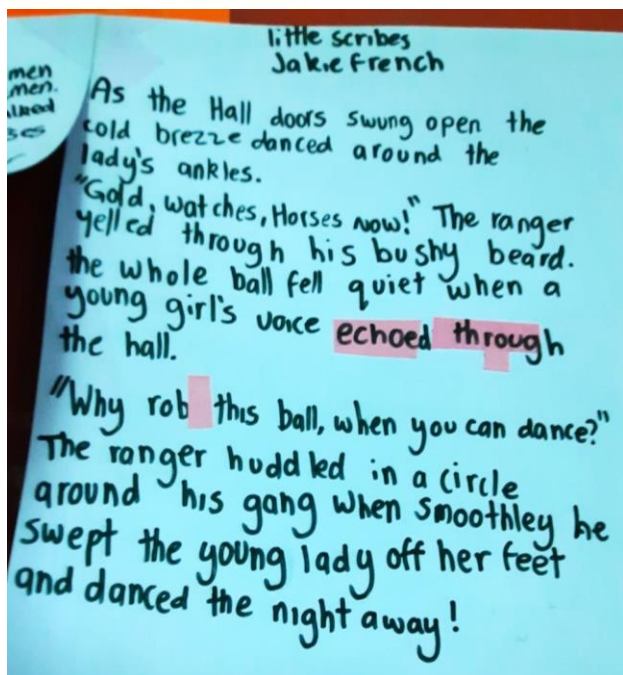 little scribes
Jakie French
men
men.
As the Hall doors swung open the
cold brezze danced around the
lady's ankles.
"Gold, watches, Horses now!" The ranger
yelled through his bushy beard.
the whole ball fell quiet when a
young girl's voice echoed through
the hall.
"Why rob this ball, when you can dance?"
The ranger huddled in a circle
around his gang when smoothley he
swept the young lady off her feet
and danced the night away!